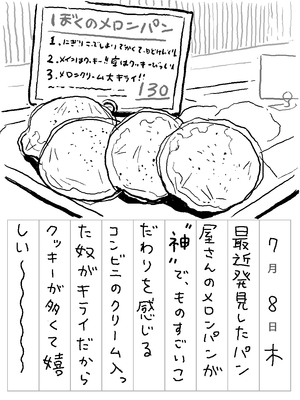 ぼくのメロンパン
1、にぎりこぶしよりでかくてひとりじめ!
2、メインはクッキー!!
3、メロンクリーム大キライ!!
130
7月8日木
最近発見したパン
屋さんのメロンパンが
“神”で、ものすごいこ
だわりを感じる
コンビニのクリーム入っ
た奴がキライだから
クッキーが多くて嬉
しい〜〜〜〜